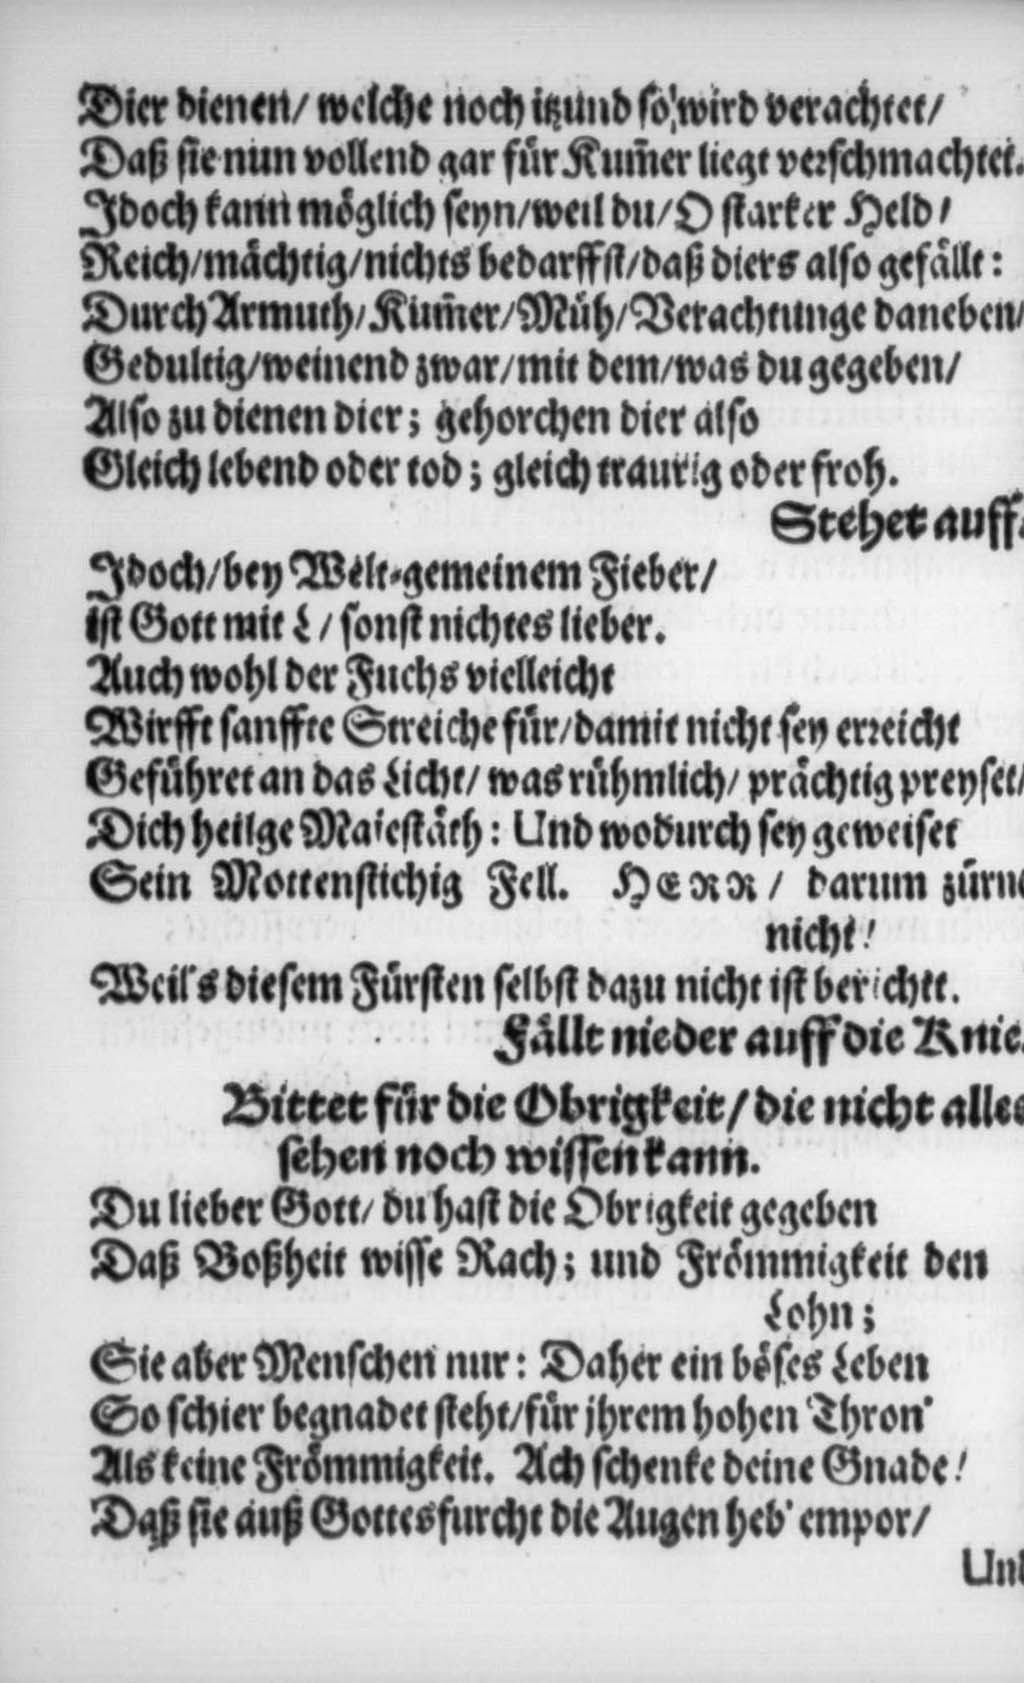 Dier dienen/ welche noch itzund so wird verachtet/
Daß sie nun vollend gar für Kum̄er liegt verschmachtet.
Jdoch kann möglich seyn/weil du/O starker Held/
Reich/mächtig/nichts bedarffst/daß diers also gefällt:
Durch Armuth/Kum̄er/Müh/Verachtunge daneben/
Gedultig/weinend zwar/mit dem/was du gegeben/
Also zu dienen dier; gehorchen dier also
Gleich lebend oder tod; gleich traurig oder froh.
Stehet auff.
Jdoch/bey Welt-gemeinem Fieber/
ist Gott mit L/ sonst nichtes lieber.
Auch wohl der Fuchs vielleicht
Wirfft sanffte Streiche für/damit nicht sey erreicht
Geführet an das Licht/ was rühmlich/ prächtig preyset/
Dich heilge Maiestäth: Und wodurch sey geweiset
Sein Mottenstichig Fell. HERR/ darum zürne
nicht!
Weil's diesem Fürsten selbst dazu nicht ist berichtt.
Fällt nieder auff die Knie.
Bittet für die Obrigkeit/die nicht alles
sehen noch wissen kann.
Du lieber Gott/ du hast die Obrigkeit gegeben
Daß Boßheit wisse Rach; und Frömmigkeit den
Lohn;
Sie aber Menschen nur: Daher ein böses Leben
So schier begnadet steht/für jhrem hohen Thron'
Als keine Frömmigkeit. Ach schenke deine Gnade!
Daß sie auß Gottesfurcht die Augen heb' empor/
Und